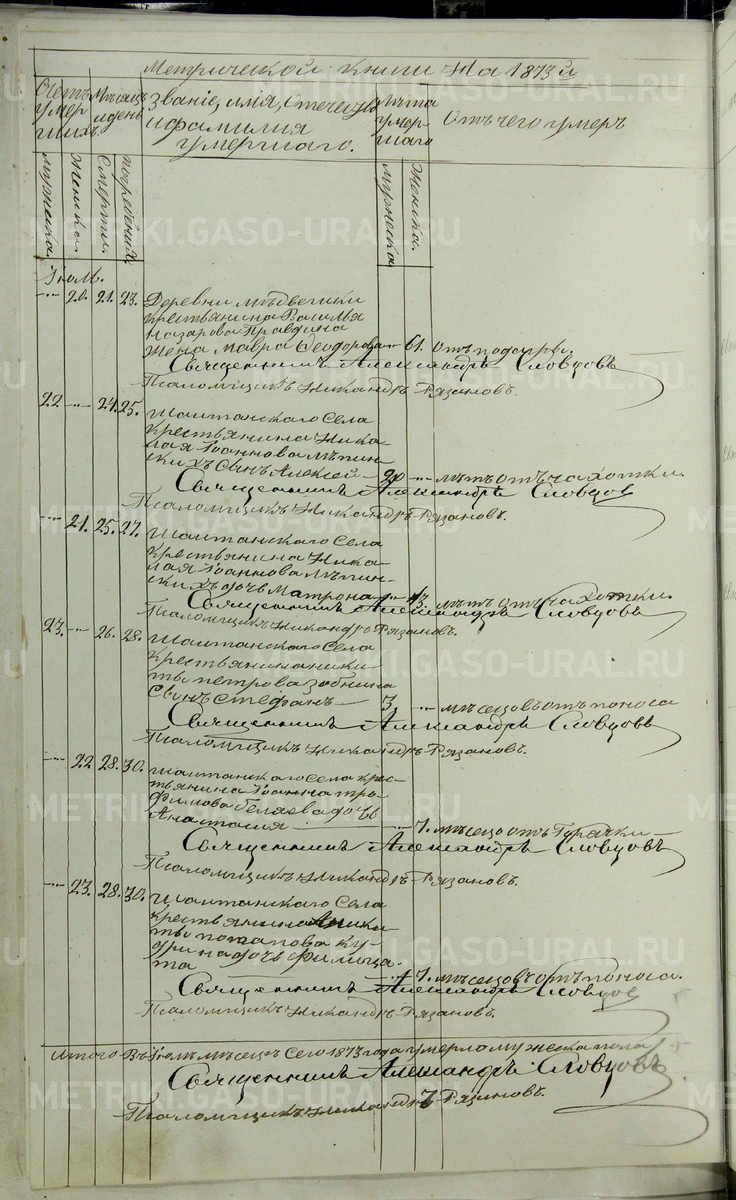 Метрической книги На 1873й
Счетъ умер шихъ.
Мѣсяцъ и день
Званіе, имя, отечество и фамилия умершаго.
Лѣта умер- шаго
Отъ чего умеръ
Мужеска. Женска. Смерти. Погребения. Мужеска. Женска.
Іюль.
20. 21. 23. Деревни Мѣдведки
крестьянина Василья
Назарова Правдина
жена Мавра Феодорова 61. отъ подагры.
Священникъ Александръ Словцовъ
Псаломщикъ Никандръ Рязановъ.
22 24. 25. Шайтанскаго Села
крестьянина Нико-
лая Іоаннова
сынъ Алексей лѣтъ отъ чахотки.
Священникъ Александръ Словцовъ
Псаломщикъ Никандръ Рязановъ.
21. 25. 27. Шайтанскаго Села
крестьянина Нико-
лая Іоаннова
дочь Матрона лѣтъ отъ чахотки.
Священникъ Александръ Словцовъ
Псаломщикъ Никандръ Рязановъ.
23. 26. 28. Шайтанскаго Села
крестьянина Ники-
ты Петрова Зобнина
Сынъ Стефанъ 3. мѣсецовъ отъ поноса
Священникъ Александръ Словцовъ
Псаломщикъ Никандръ Рязановъ.
22 28. 30. Шайтанскаго Села крес-
тьянина Іоанна Тро-
фимова Беляева дочь
Анастасия 7. мѣсецо отъ Горячки
Священникъ Александръ Словцовъ
Псаломщикъ Никандръ Рязановъ.
23. 28. 30. Шайтанскаго Села
крестьянина Ники-
ты Потапова Ку-
дрина дочь Филица-
та 7. мѣсецовъ отъ поноса.
Священникъ Александръ Словцовъ
Псаломщикъ Никандръ Рязановъ.
Итого въ Іюль мѣсецъ Сего 1873 года умерло мужеска пола
Священникъ Александръ Словцовъ
Псаломщикъ Никандръ Рязановъ.
METRIKI.GASO-URAL.RU